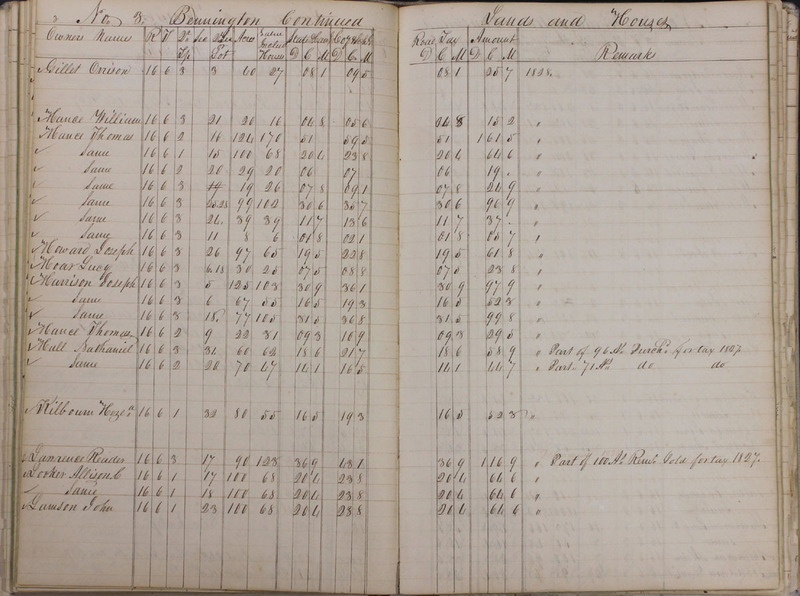 No. 3. Bennington Continued Lands and Houses
Owners Names R T Sec Acres Road Tax Amount Remarks
D C M D C M D C M D C M
Gillet Orrison 16 6 3 3 60 27 08 1 09 5 08 1 25 7 1828
Hance William 16 6 3 21 20 16 04 8 05 6 04 8 15 2 "
Hance Thomas 16 6 2 16 124 170 51 59 5 51 1 61 5 "
✓ Same 16 6 1 15 100 68 20 4 23 8 20 4 64 6 "
✓ Same 16 6 2 20 29 20 06 07 06 19 "
✓ Same 16 6 3 19 26 07 8 09 1 07 8 24 9 "
✓ Same 16 6 3 25.28 99 102 30 6 35 7 30 6 96 9 "
✓ Same 16 6 3 24 39 39 11 7 13 6 11 7 37 "
✓ Same 16 6 3 11 8 6 01 8 02 1 01 8 05 7 "
Howard Joseph 16 6 3 26 97 65 19 5 22 8 19 5 61 8 "
Hoar Lucy 16 6 3 6.18 30 25 07 5 08 8 07 5 23 8 "
Harrison Joseph 16 6 3 5 125 103 30 9 36 1 30 9 97 9 "
✓ Same 16 6 3 6 67 55 16 5 19 3 16 5 52 3 "
✓ Same 16 6 3 18 77 105 31 5 36 8 31 5 99 8 "
Hance Thomas 16 6 2 9 22 31 09 3 10 9 09 3 29 5 "
Hall Nathaniel 16 6 3 31 60 62 18 6 21 7 18 6 58 9 " Part of 96 As. Purchd. for tax 1827
✓ Same 16 6 2 20 70 47 14 1 16 5 14 1 44 7 " Part 71 As. do do
Kilbourn Heza. 16 6 1 32 80 55 16 5 19 3 16 5 52 3 "
Lawrence Reader 16 6 3 17 90 123 36 9 43 1 36 9 1 16 9 " Part of 100 As. Remr. Sold for tax 1827.
Looker Allison C 16 6 1 17 100 68 20 4 23 8 20 4 64 6 "
✓ Same 16 6 1 18 100 68 20 4 23 8 20 4 64 6 "
Lamson John 16 6 1 23 100 68 20 4 23 8 20 4 64 6 "